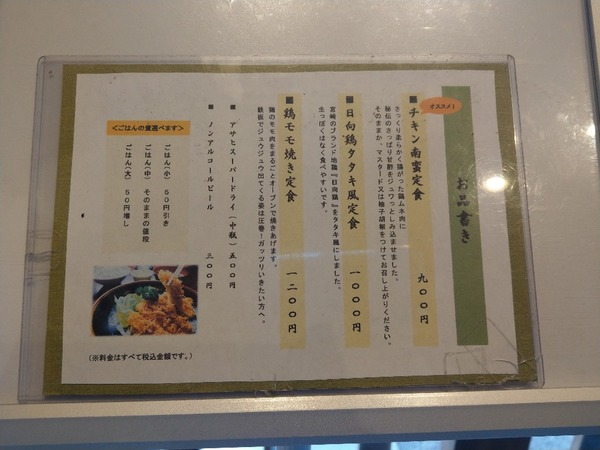 お品書き
オススメ！
■ チキン南蛮定食 九〇〇円
さっくり柔らかく揚がった鶏ムネ肉に
秘伝のさっぱり甘酢をジュワっとしみ込ませました。
そのままか、マスタード又は柚子胡椒をつけてお召し上がりください。
■ 日向鶏タタキ風定食 一〇〇〇円
宮崎のブランド地鶏『日向鶏』をタタキ風にしました。
生っぽくはなく食べやすいです。
■ 鶏モモ焼き定食 一二〇〇円
鶏のモモ肉をまるごとオーブンで焼きあげます。
鉄板でジュウジュウ出てくる姿は圧巻！ガッツリいきたい方へ。
■ アサヒスーパードライ（中瓶）五〇〇円
■ ノンアルコールビール 三〇〇円
＜ごはんの量選べます＞
ごはん（小） ５０円引き
ごはん（中） そのままの値段
ごはん（大） ５０円増し
（※料金はすべて税込金額です。）